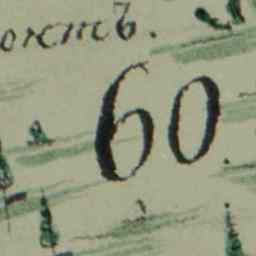 ожтъ.
60.